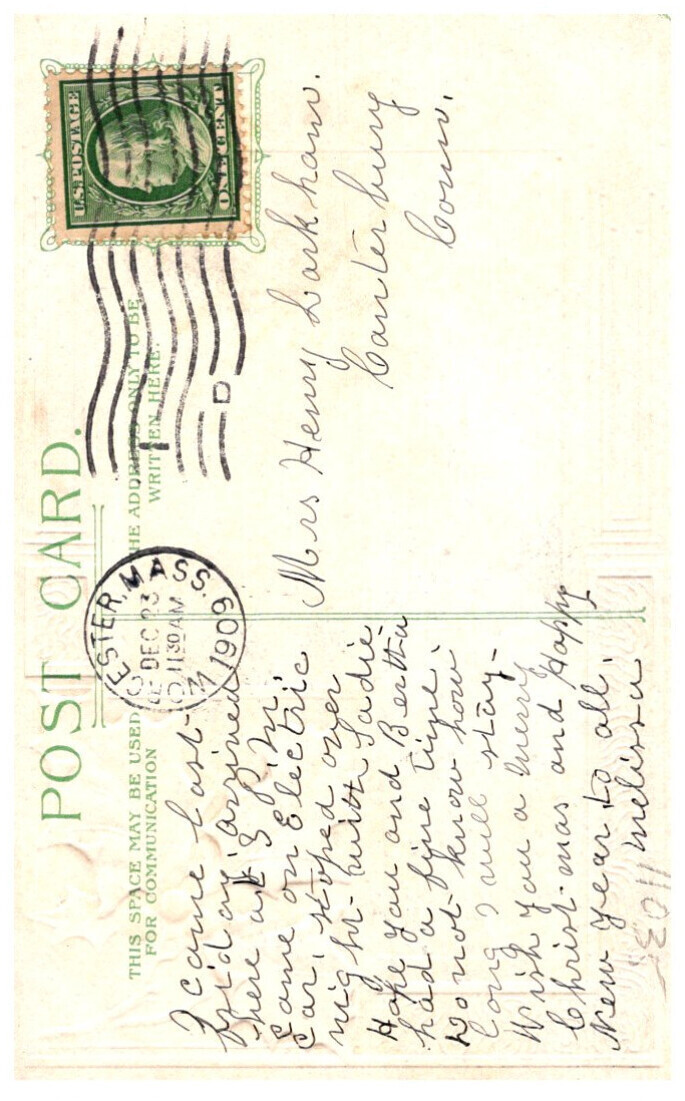 POST CARD.
THIS SPACE MAY BE USED
FOR COMMUNICATION
THE ADDRESS ONLY TO BE
WRITTEN HERE.
U.S. POSTAGE
ONE CENT
ESTER, MASS.
DEC 23
11 30 AM
1909
D
I came last-
friday arrived
there at 3 P.m.
Came on Electric
Car, stoped over
night- with Sadie
Hope you and Bertha
had a fine time.
Do not know how
long I will stay-
Wish you a merry
Christ-mas and Happy
New year to all.
melissa
Mrs Henry Larkham.
Canterbury
Conn.